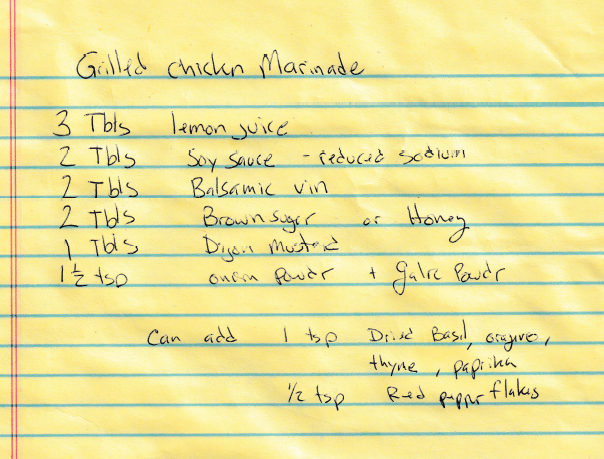 Grilled Chickn Marinade
3 Tbls lemon juice
2 Tbls Soy Sauce - reduced sodium
2 Tbls Balsamic vin
2 Tbls Brown suger or Honey
1 Tbls Dijon Mustard
1 1/2 tsp onion Powdr + Galric Powdr
Can add 1 tsp Dried Basil, oragino,
thyme, paprika
1/2 tsp Red pepper flakes